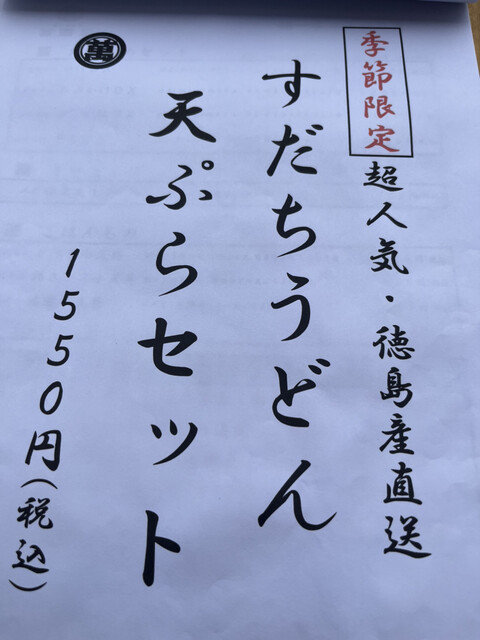 季節限定
超人気・徳島産直送
すだちうどん
天ぷらセット
1550円(税込)
萬